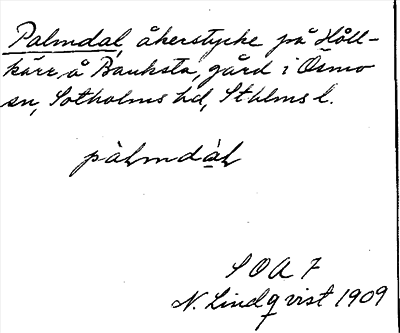 Palmdal, åkerstycke på Håll-
kärr å Bauksta, gård i Ösmo
sn, Sotholms hd, Sthlms l.
pàlmdàl
S O A 7
N. Lindqvist 1909